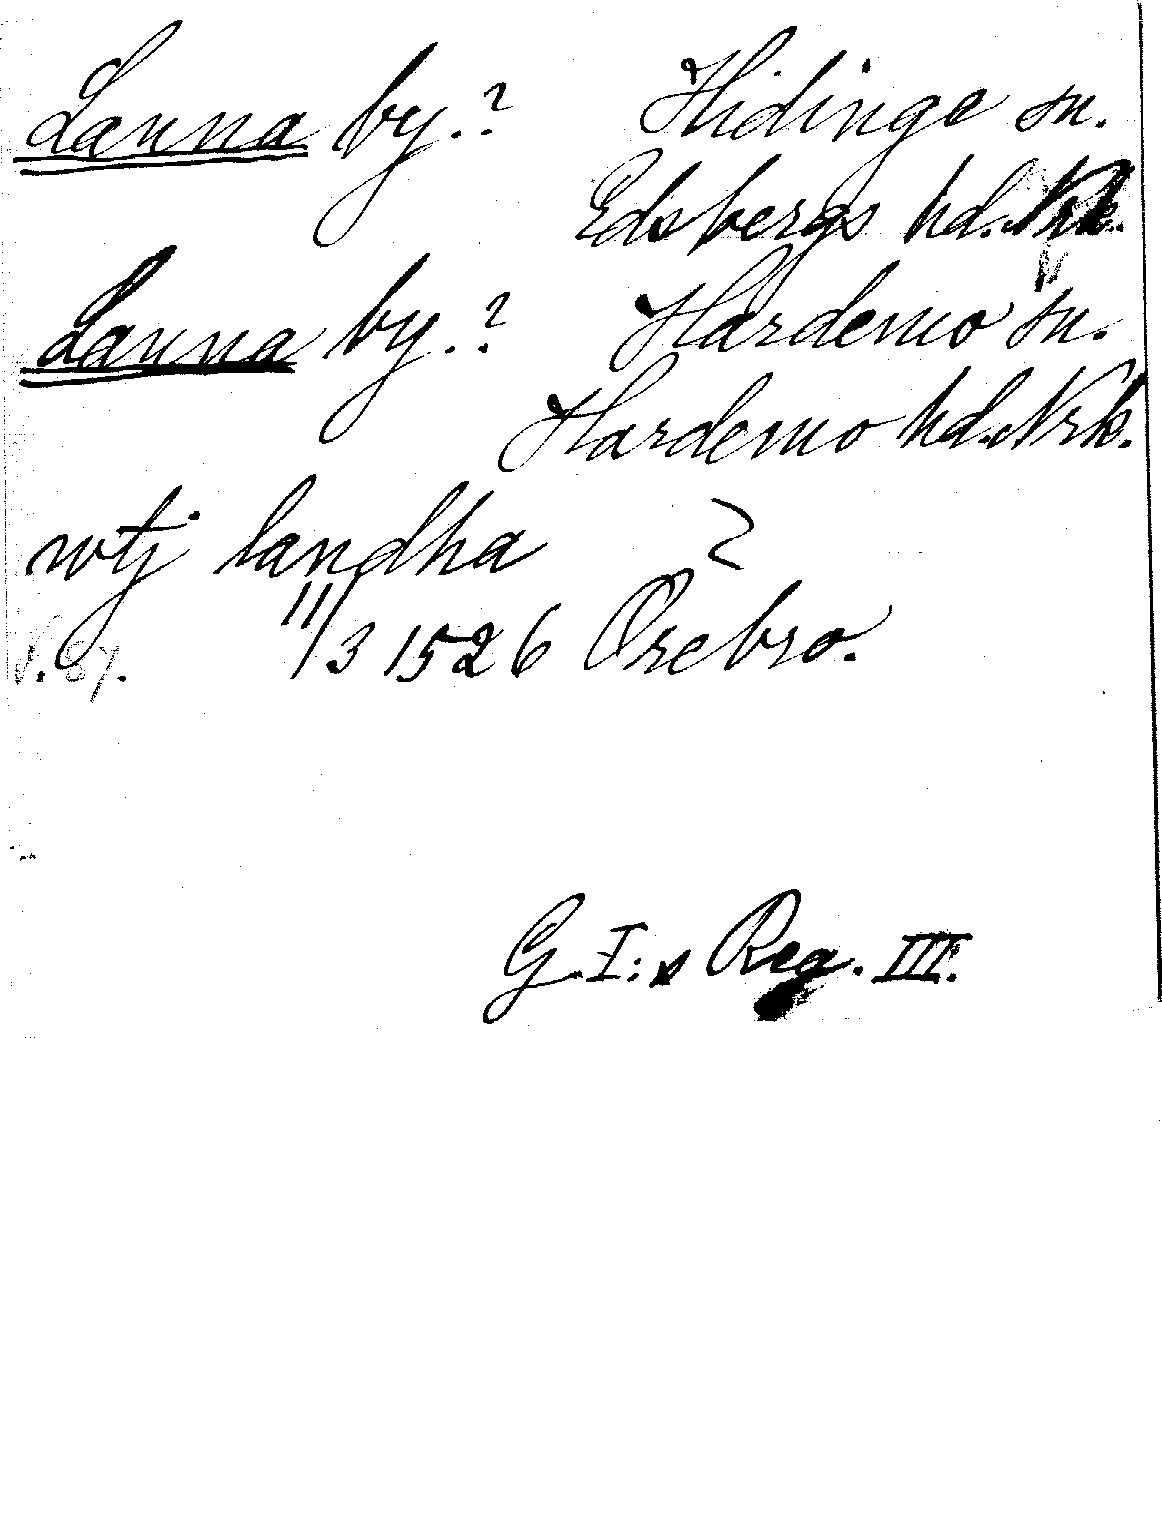 Lanna by.? Hidinge sn.
Edsbergs hd. Nrk.
Lanna by.? Hardemo sn.
Hardemo hd. Nrk.
wtj landha
11/3 1526 Örebro.
S. 87.
G. I:s Reg. III.